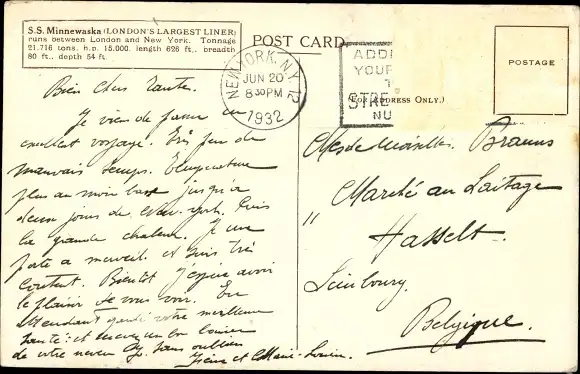 S.S. Minnewaska (LONDON'S LARGEST LINER)
runs between London and New York. Tonnage
21.716 tons. h.p. 15.000. length 626 ft., breadth
80 ft., depth 54 ft.
POST CARD
NEW YORK, N.Y. 12
JUN 20
8 30 PM
1932
ADD
YOUR
STRE
NU
(FOR ADDRESS ONLY.)
POSTAGE
Bien cher tantes.
Je viens de passer un
excellent voyage. Très peu de
mauvais temps. Température
plus au moin bas jusqu'a
deux jours de New-York. Puis
la grande chaleur. Je me
porte a merveil et suis très
content. Bientot j'espère avoir
le plaisir de vous voir. En
attendant votre meilleure
santé: et recevez un bon baiser
de votre neveu sans oublier
et Marie-Louise.
Mesdemoiselles Brauns
" Marché au Laitage
Hasselt.
Limbourg.
Belgique.